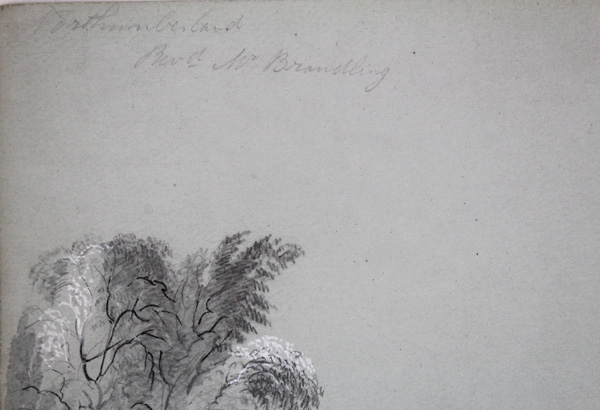 Northumberland
Revd. Mr Brandling